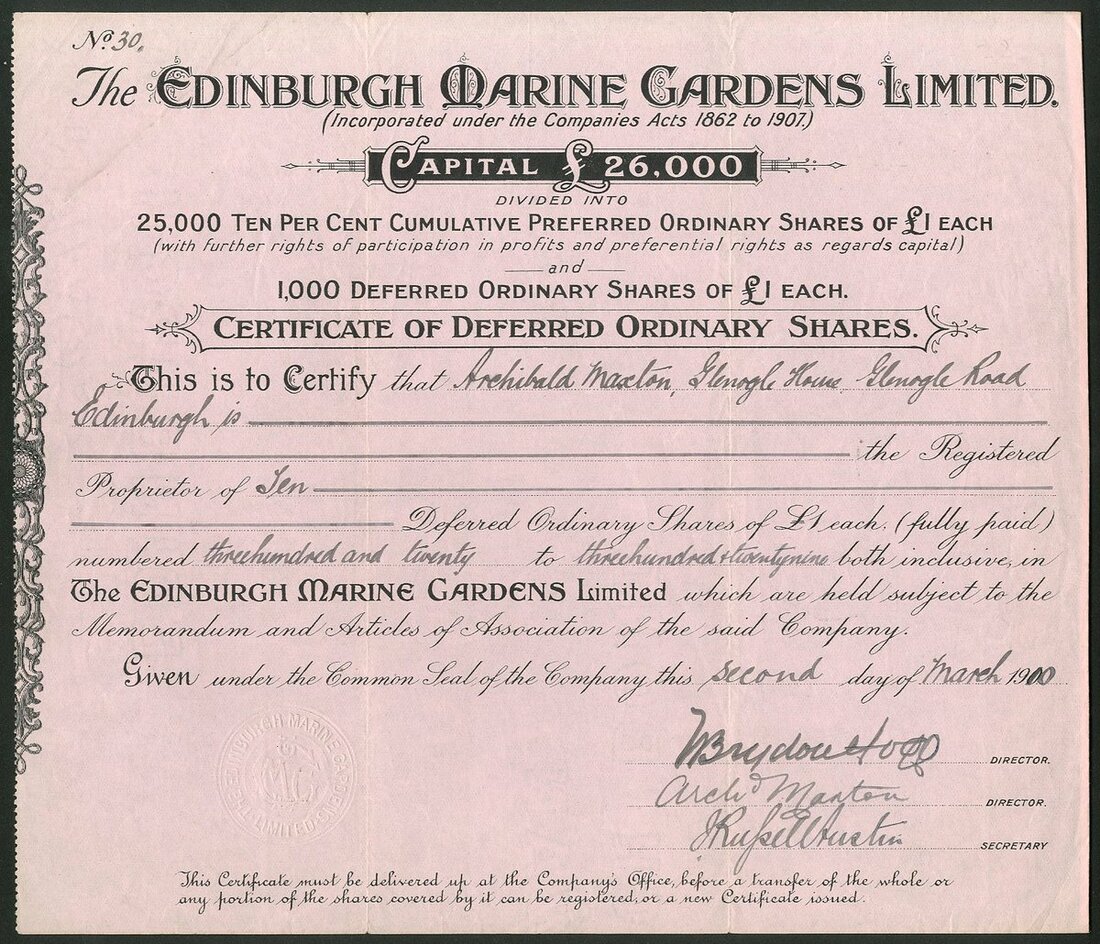 No. 30.
The EDINBURGH MARINE GARDENS LIMITED.
(Incorporated under the Companies Acts 1862 to 1907.)
CAPITAL £26,000
DIVIDED INTO
25,000 TEN PER CENT CUMULATIVE PREFERRED ORDINARY SHARES OF £1 EACH
(with further rights of participation in profits and preferential rights as regards capital)
and
1,000 DEFERRED ORDINARY SHARES OF £1 EACH.
CERTIFICATE OF DEFERRED ORDINARY SHARES.
This is to Certify that Archibald Maxton, Glenogle House Glenogle Road
Edinburgh is
the Registered
Proprietor of Ten
Deferred Ordinary Shares of £1 each. (fully paid)
numbered threehundred and twenty to threehundred & twentynine both inclusive, in
The EDINBURGH MARINE GARDENS Limited which are held subject to the
Memorandum and Articles of Association of the said Company.
Given under the Common Seal of the Company this second day of March 1910
THE EDINBURGH MARINE GARDENS LIMITED
MG
DIRECTOR.
Archd Maxton DIRECTOR.
J Russell Austin SECRETARY
This Certificate must be delivered up at the Company's Office, before a transfer of the whole or
any portion of the shares covered by it can be registered, or a new Certificate issued.